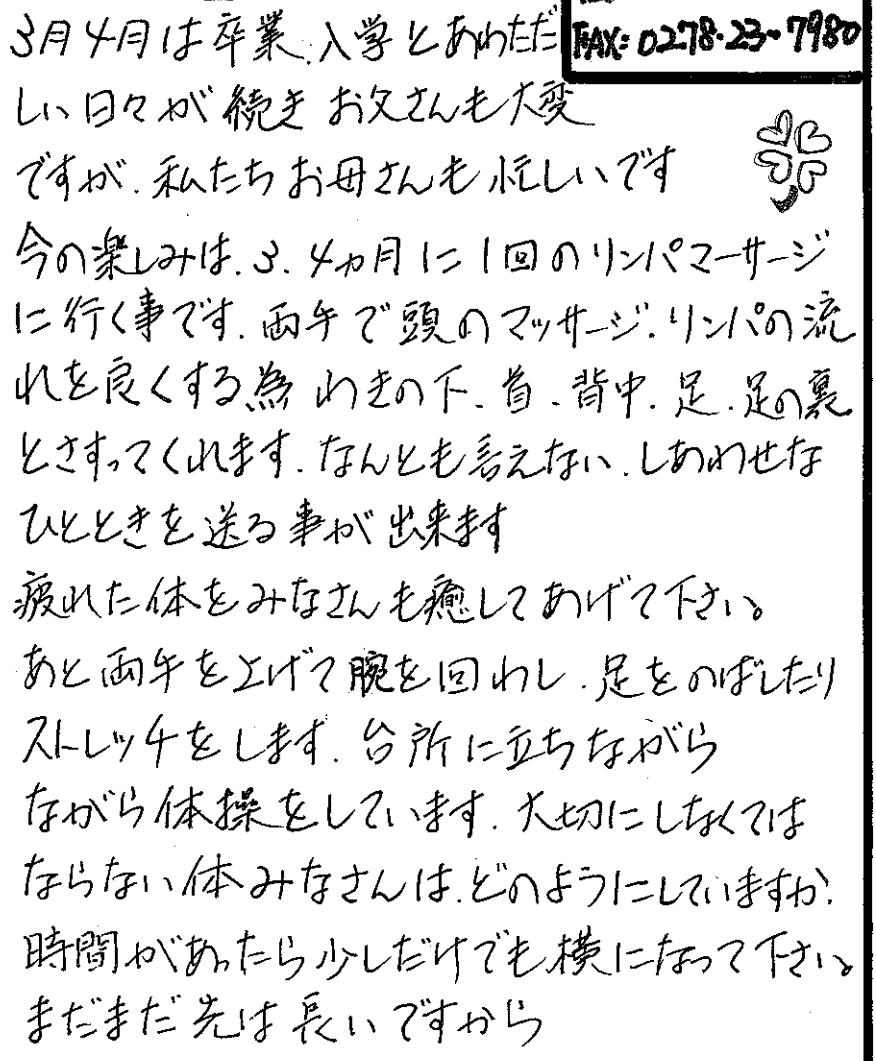 FAX: 0278・23・7980
3月4月は卒業、入学とあわただ
しい日々が続き お父さんも大変
ですが、私たちお母さんも忙しいです
今の楽しみは、3、4ヵ月に1回のリンパマーサージ
に行く事です、両手で頭のマッサージ、リンパの流
れを良くする為 わきの下、首、背中、足、足の裏
とさすってくれます、なんとも言えない、しあわせな
ひとときを送る事が出来ます
疲れた体をみなさんも癒してあげて下さい。
あと両手を上げて腕を回わし、足をのばしたり
ストレッチをします、台所に立ちながら
ながら体操をしています、大切にしなくては
ならない体みなさんは、どのようにしていますか、
時間があったら少しだけでも横になって下さい。
まだまだ先は長いですから